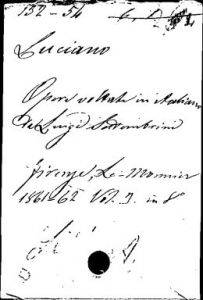 132-54
Luciano
Opere voltate in italiano
da Luigi Settembrini
Firenze, Le-Monnier
1861-62 Vol. 3. in 8°